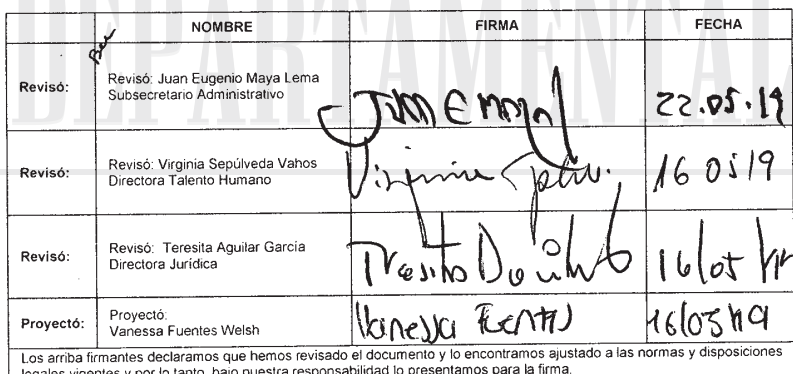 DEPARTAMENTAL
NOMBRE FIRMA FECHA
Revisó: Revisó: Juan Eugenio Maya Lema
Subsecretario Administrativo
Juan E Maya L 22.05.19
Revisó: Revisó: Virginia Sepúlveda Vahos
Directora Talento Humano
Virginia 16 05 19
Revisó: Revisó: Teresita Aguilar García
Directora Jurídica
16/05
Proyectó: Proyectó:
Vanessa Fuentes Welsh
Vanessa Fuentes 16/05/19
Los arriba firmantes declaramos que hemos revisado el documento y lo encontramos ajustado a las normas y disposiciones
legales vigentes y por lo tanto, bajo nuestra responsabilidad lo presentamos para la firma.